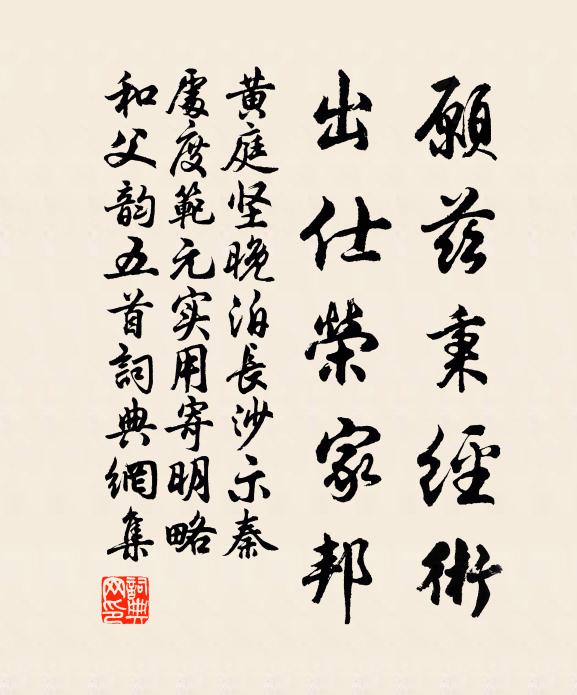 願兹秉經術
出仕榮家邦
黄庭坚晚泊長沙示秦
處度範元实用寄明略
和父韵五首詞典網集
詞典网印